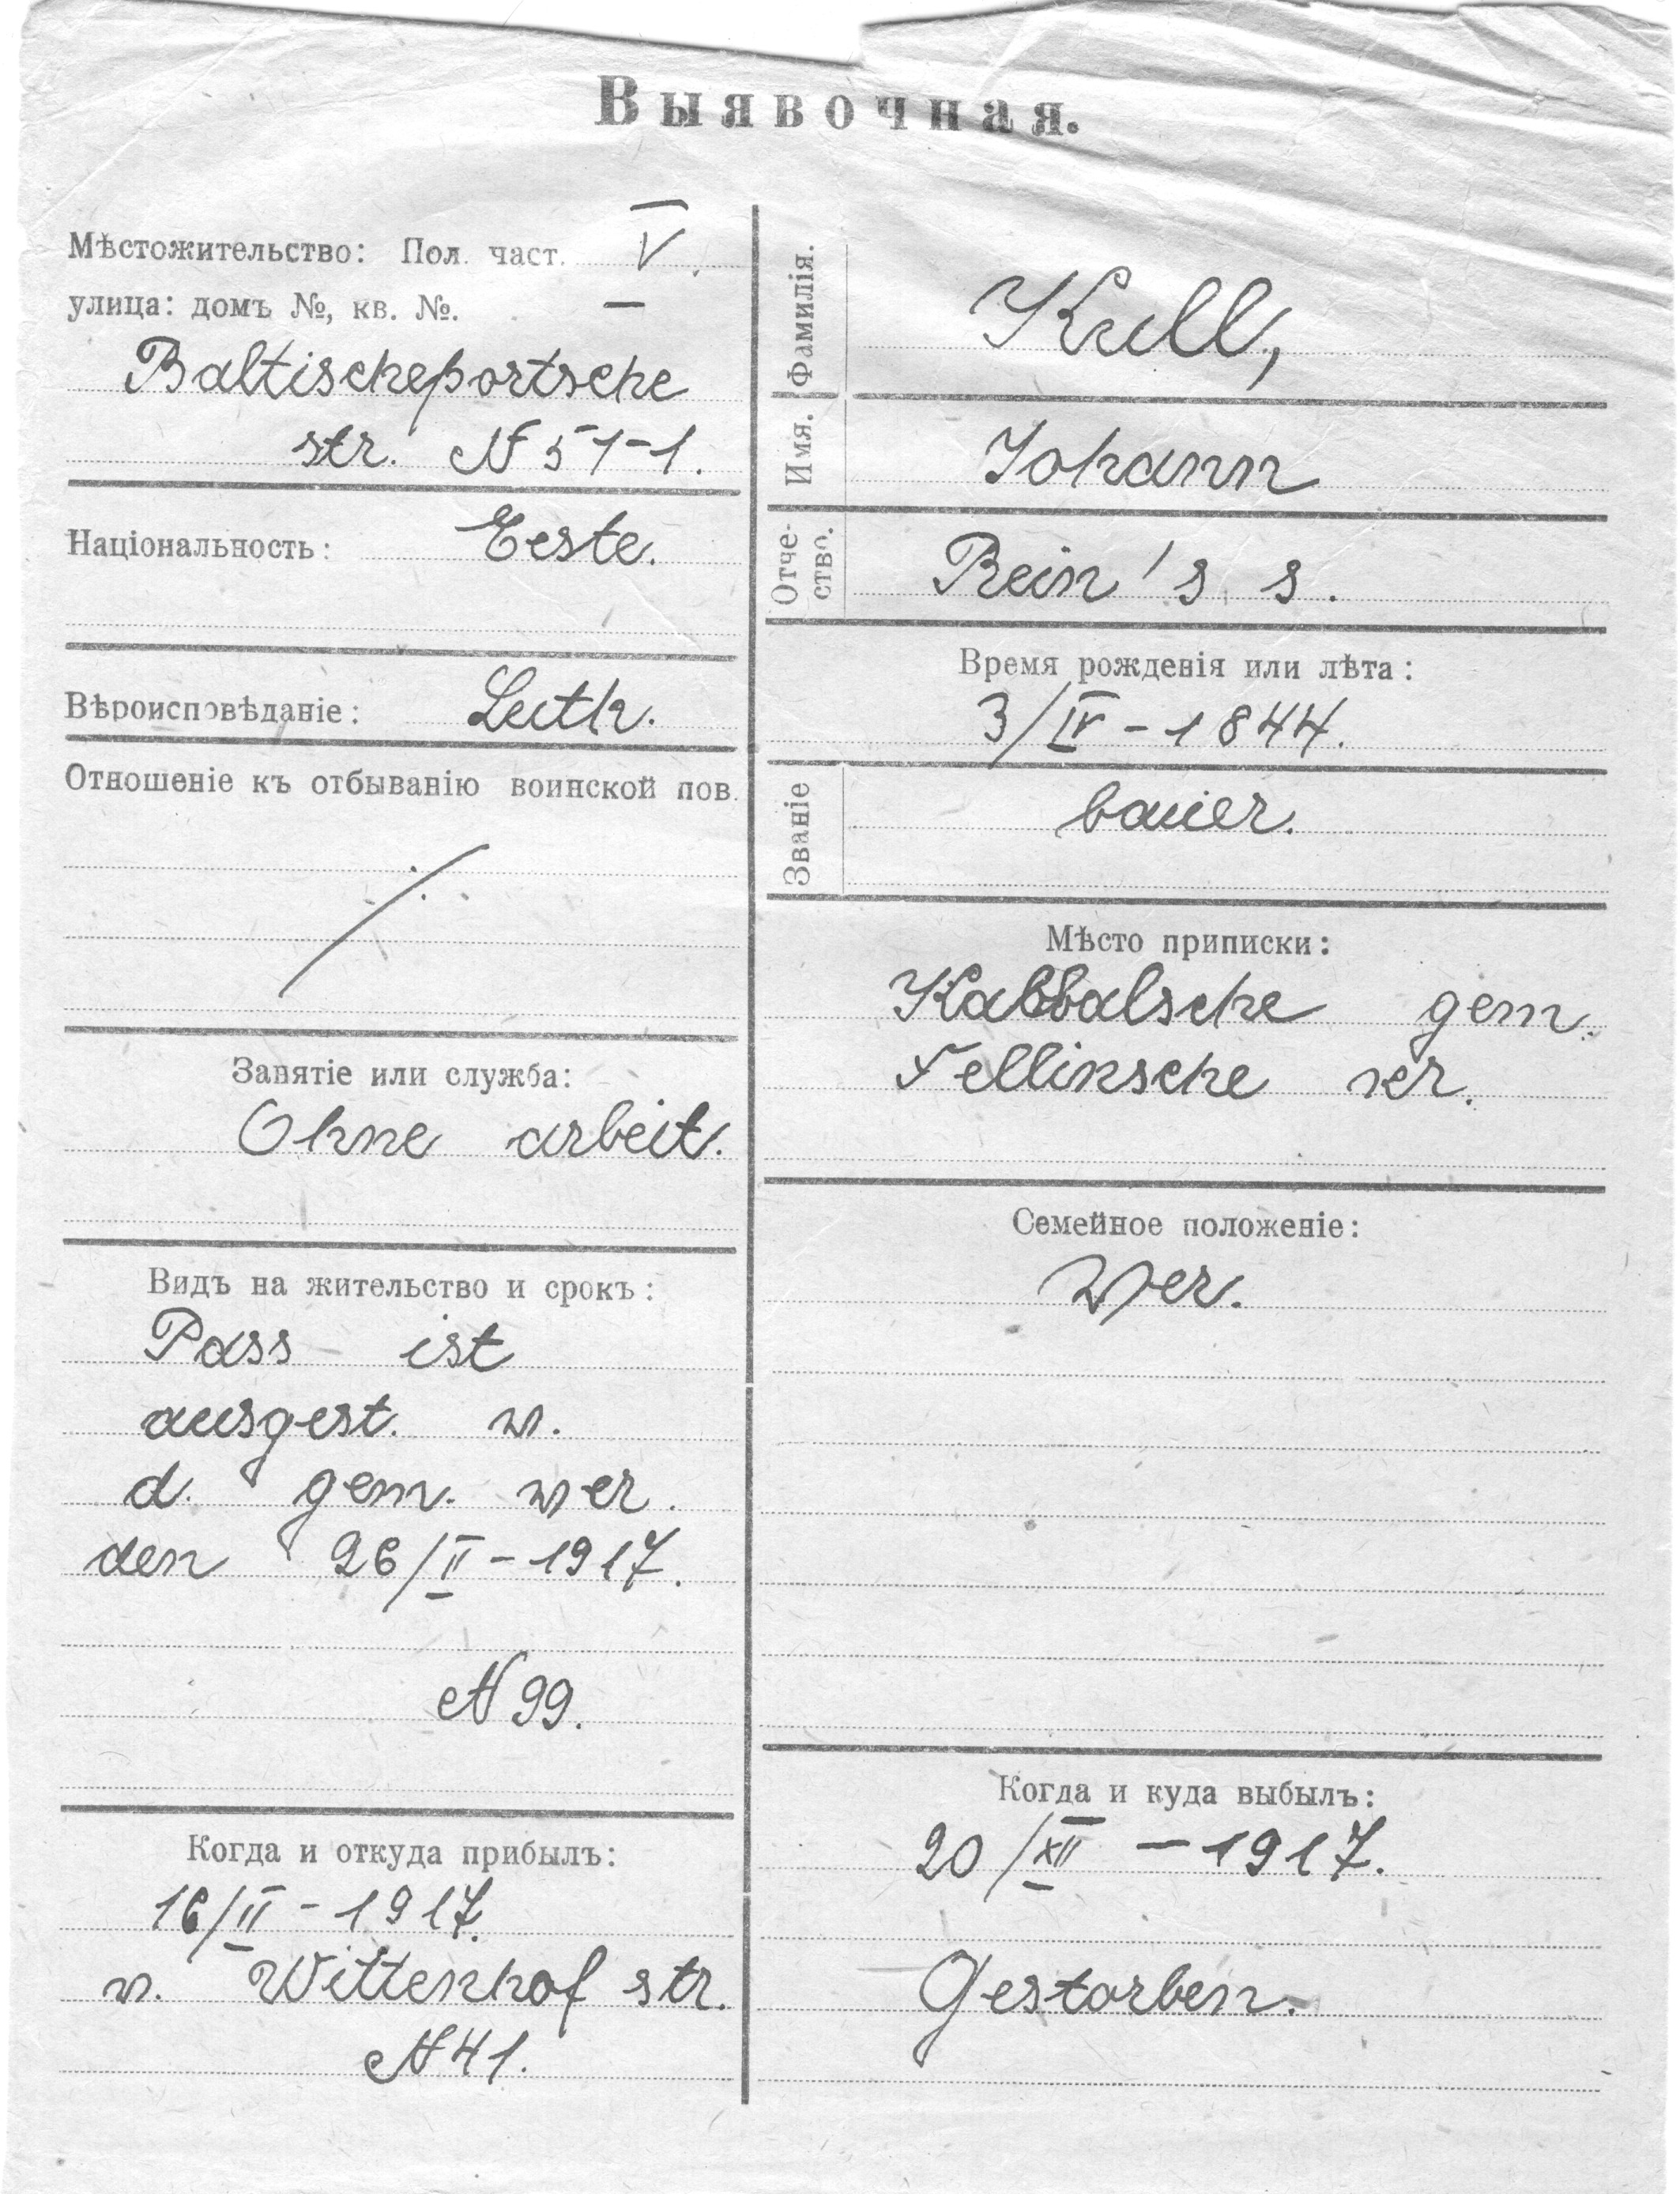 Выявочная.
Мѣстожительство: Пол. част. V.
улица: домъ №, кв. №. —
Baltischeportsche
str. № 51-1.
Національность: Eeste.
Вѣроисповѣданіе: Luth.
Отношеніе къ отбыванію воинской пов.
Занятіе или служба:
Ohne arbeit.
Видъ на жительство и срокъ:
Pass ist
ausgest. w.
d. gem. wer.
den 26/II-1917.
№ 99.
Когда и откуда прибылъ:
16/II-1917.
w. Wittenhof str.
№ 41.
Фамилія. Kull,
Имя. Johann
Отче-
ство. Rein's s.
Время рожденія или лѣта:
3/IV-1844.
Званіе bauer.
Мѣсто приписки:
Kabbalsche gem.
Fellinsche kr.
Семейное положеніе:
Wer.
Когда и куда выбылъ:
20/XII-1917.
Gestorben.